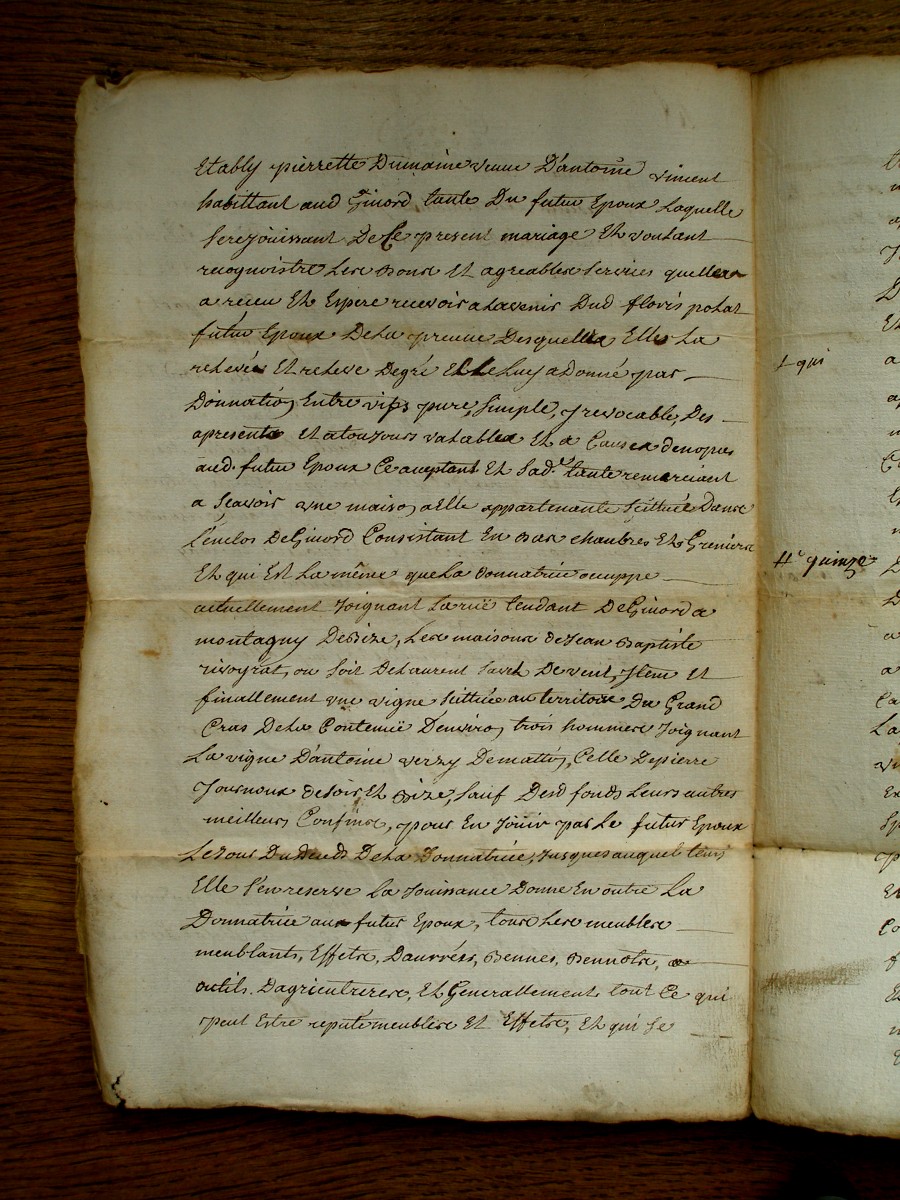 Etably pierrette Dumaine veuve D'antoine vincent
habittant aud Givord tante Du futur Epoux Laquelle
Serejouissant De Ce present mariage Et voulant
recognoistre Les Bons Et agreables Services quelle
a receu Et Espere recevoir alavenir Dud floris potat
futur Epoux Dela preuve Desquelles Elle La
relevée Et releve Degré Elle Luy a Donné par
Donnation Entre vifs pure, Simple, jrevocable, Des
apresents Et atoujours valables Et a Causes denopces
aud. futur Epoux Ce aceptant Et Sad.e tante remerciant
a Scavoir une maison a Elle appartenante Scittuée Dans
L'enclos De Givord Consistant En Bas chambres Et Greniers
Et qui Est La même que La Donnatrice occuppe
actuellement Joignant La ruë tendant De Givord a
montagny De Bize, Les maisons de Jean Baptiste
rivoyrat, ou Soit De Laurent De vent, Jtem Et
finallement une vigne Scittuée au territoire Du Grand
Cras De La Contenuë D'environ trois hommes Joignant
La vigne D'antoine verzy De mattin, Celle De pierre
Journoux de Soir Et Bize, Sauf Desd fonds Leurs autres
meilleurs Confins, pour En Joüir par Le futur Epoux
Le Jour Du deceds De La Donnatrice, Jusques auquel tems
Elle S'en reserve La Jouissance Donne En outre La
Donnatrice au futur Epoux, tous Les meubles
meublants, Effets, Danrrées, Bennes, Bennots,
outils D'agricultures, Et Generallement tout Ce qui
peut Estre reputé meubles Et Effets, Et qui Se
qui
quinze